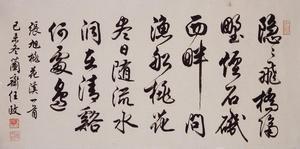 隐隐飞桥隔
野烟石矶
西畔问
渔船桃花
尽日随流水
洞在清谿
何处边
张旭桃花溪一首
己未冬兰